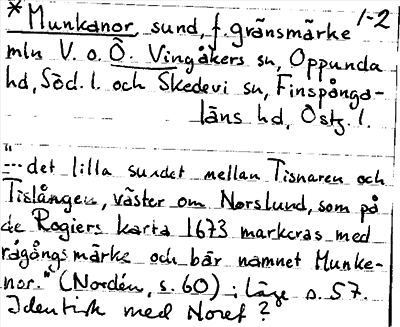 * Munkanor, sund, f. gränsmärke 1-2
mln V. o. Ö. Vingåkers sn, Oppunda
hd, Söd. l. och Skedevi sn, Finspånga-
läns hd, Östg. l.
"--- det lilla sundet mellan Tisnaren och
Tislången, väster om Norslund, som på
de Rogiers karta 1673 markeras med
rågångsmärke och bär namnet Munke-
nor." (Nordén, s. 60) ; läge s. 57.
Identisk med Noret?